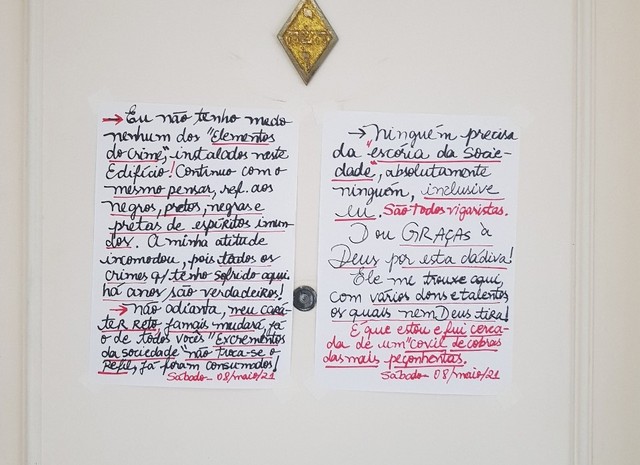 → Eu não tenho medo
nenhum dos "Elementos
do Crime", instalados neste
Edifício! Continuo com o
mesmo pensar, ref. aos
negros, pretos, negras e
pretas de espíritos imun-
dos. A minha atitude
incomodou, pois todos os
crimes q/ tenho sofrido aqui
há anos são verdadeiros!
→ não adianta, meu cará-
ter reto jamais mudará, já
o de todos vocês "Excrementos
da sociedade" não troca-se o
Refil, já foram consumados!
Sábado - 08/maio/21
→ Ninguém precisa
da "escória da Socie-
dade", absolutamente
ninguém, inclusive
eu. São todos vigaristas.
Dou GRAÇAS à
Deus por esta dádiva!
Ele me trouxe aqui,
com vários dons e talentos
os quais nem Deus tira!
E que estou e fui cerca-
da de um "covil de cobras
das mais peçonhentas.
Sábado - 08/maio/21